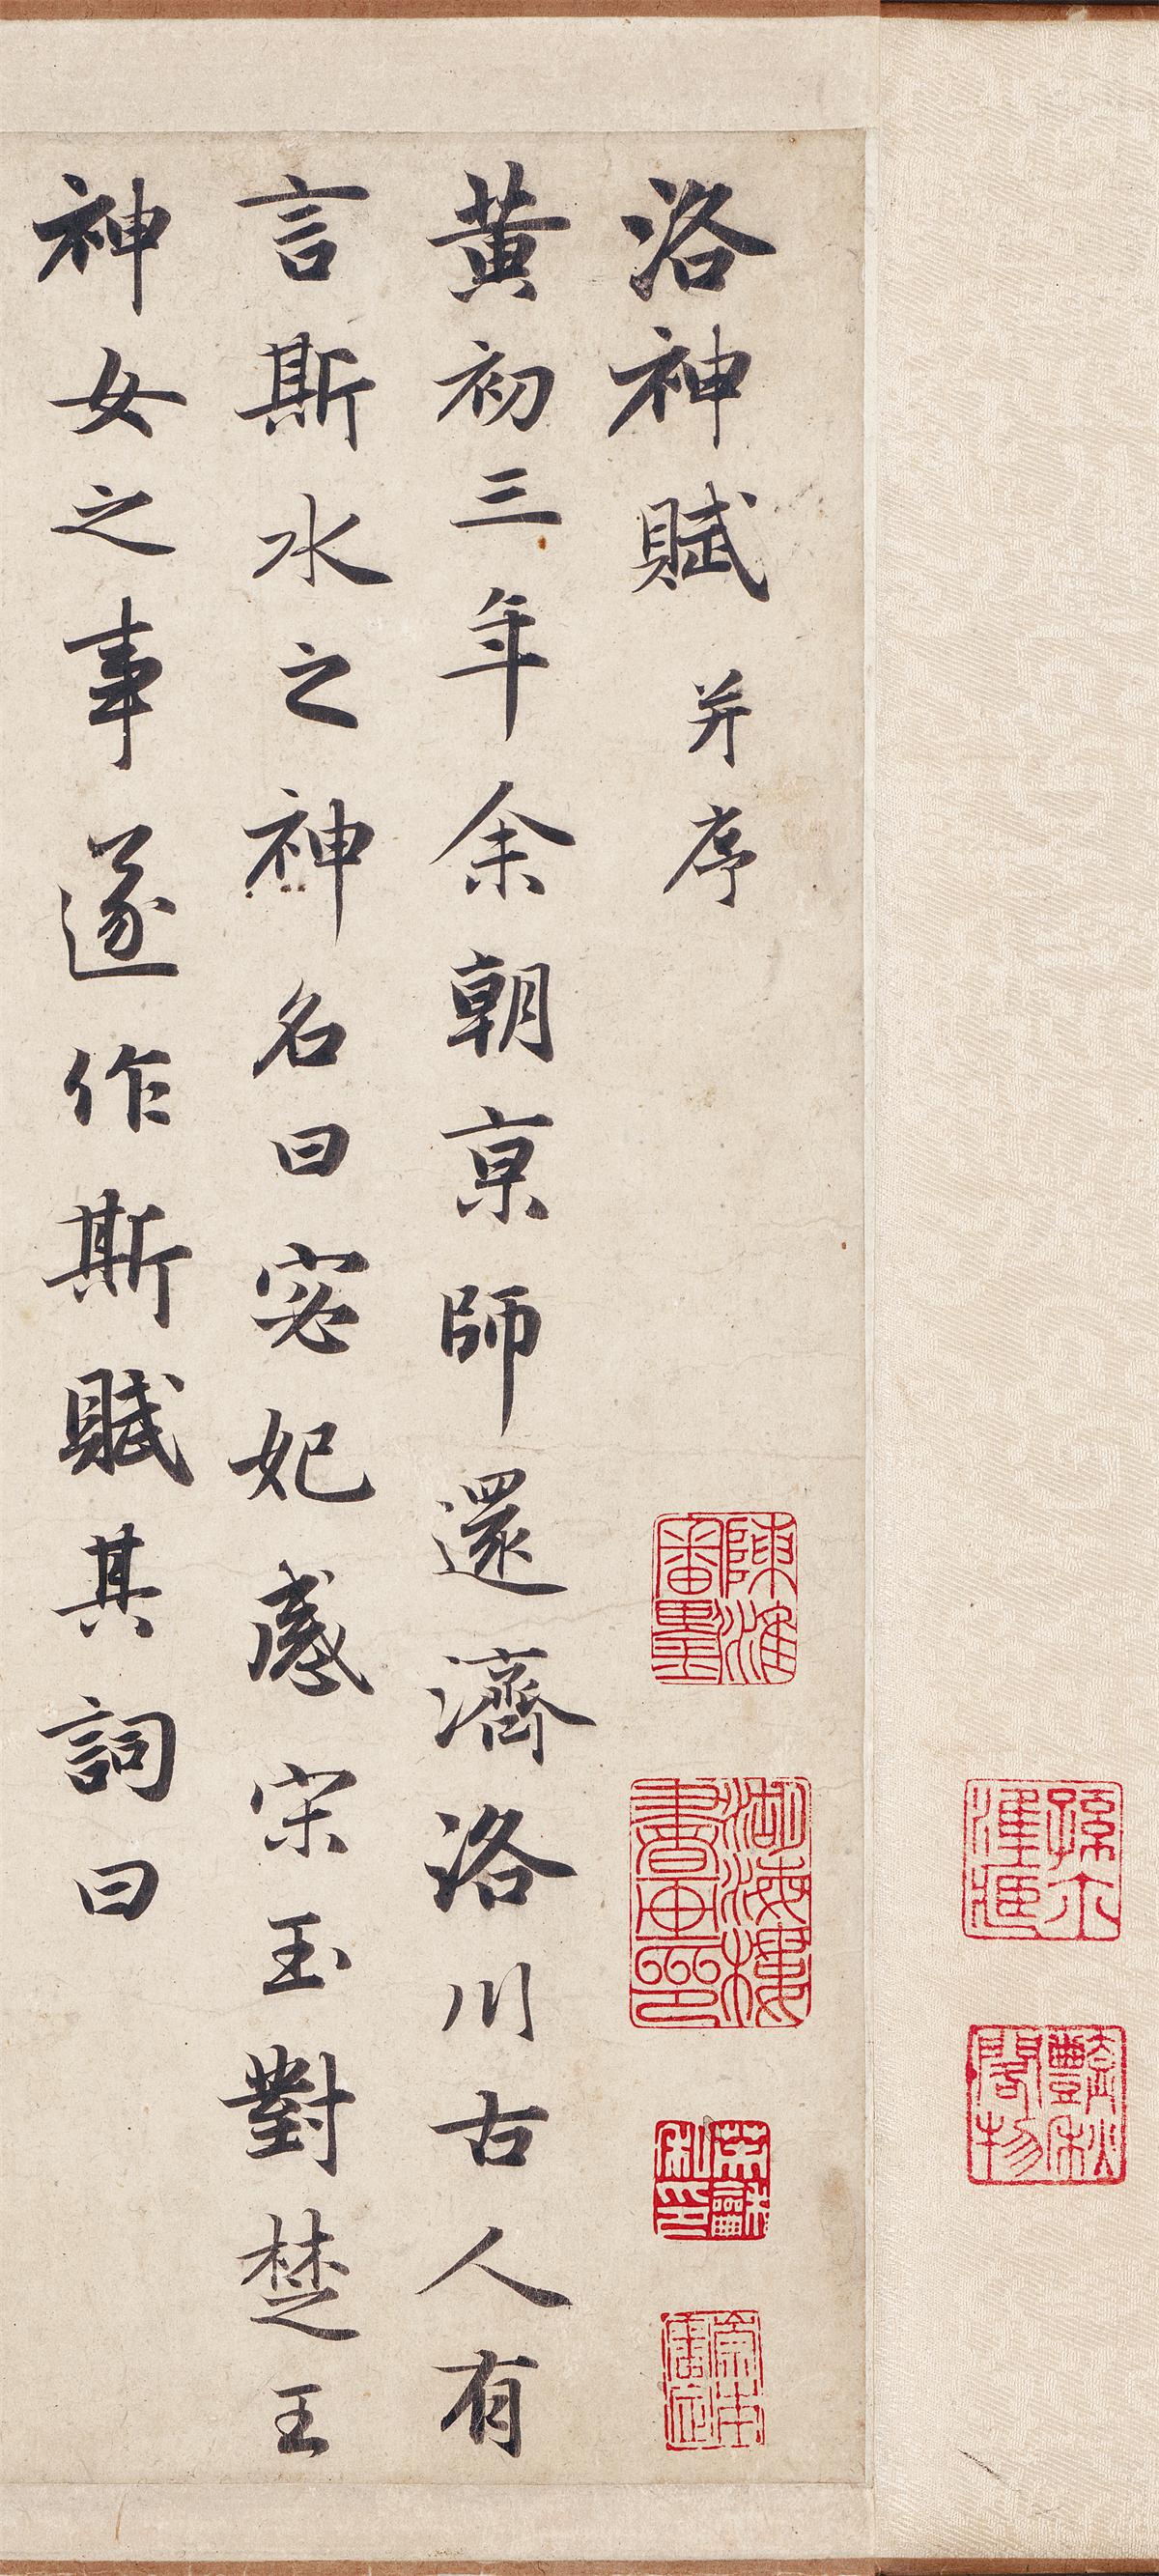 洛神賦 并序
黄初三年余朝京師還濟洛川古人有
言斯水之神名曰宓妃感宋玉對楚王
神女之事遂作斯賦其詞曰
陳淮
審墨
海樓
書畫印
私印
閣物